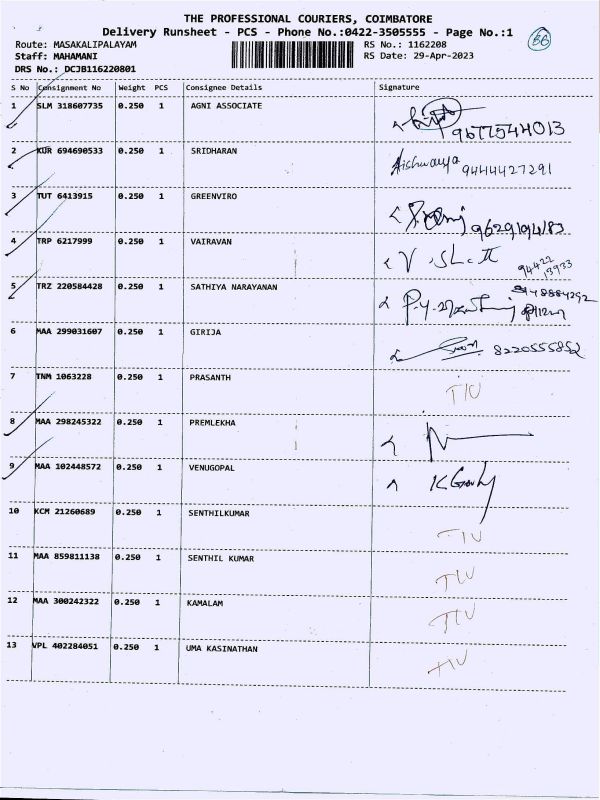 THE PROFESSIONAL COURIERS, COIMBATORE
Delivery Runsheet - PCS - Phone No.:0422-3505555 - Page No.:1
Route: MASAKALIPALAYAM RS No.: 1162208
Staff: MAHAMANI RS Date: 29-Apr-2023
DRS No.: DCJB116220801
S No Consignment No Weight PCS Consignee Details Signature
1 SLM 318607735 0.250 1 AGNI ASSOCIATE
9677544013
2 KUR 694690533 0.250 1 SRIDHARAN Aishwarya 9444427291
3 TUT 6413915 0.250 1 GREENVIRO
4 TRP 6217999 0.250 1 VAIRAVAN
94422
13933
5 TRZ 220584428 0.250 1 SATHIYA NARAYANAN
6 MAA 299031607 0.250 1 GIRIJA 8220555852
7 TNM 1063228 0.250 1 PRASANTH TIU
8 MAA 298245322 0.250 1 PREMLEKHA
9 MAA 102448572 0.250 1 VENUGOPAL
10 KCM 21260689 0.250 1 SENTHILKUMAR TIU
11 MAA 859811138 0.250 1 SENTHIL KUMAR TIU
12 MAA 300242322 0.250 1 KAMALAM TIU
13 VPL 402284051 0.250 1 UMA KASINATHAN TIU